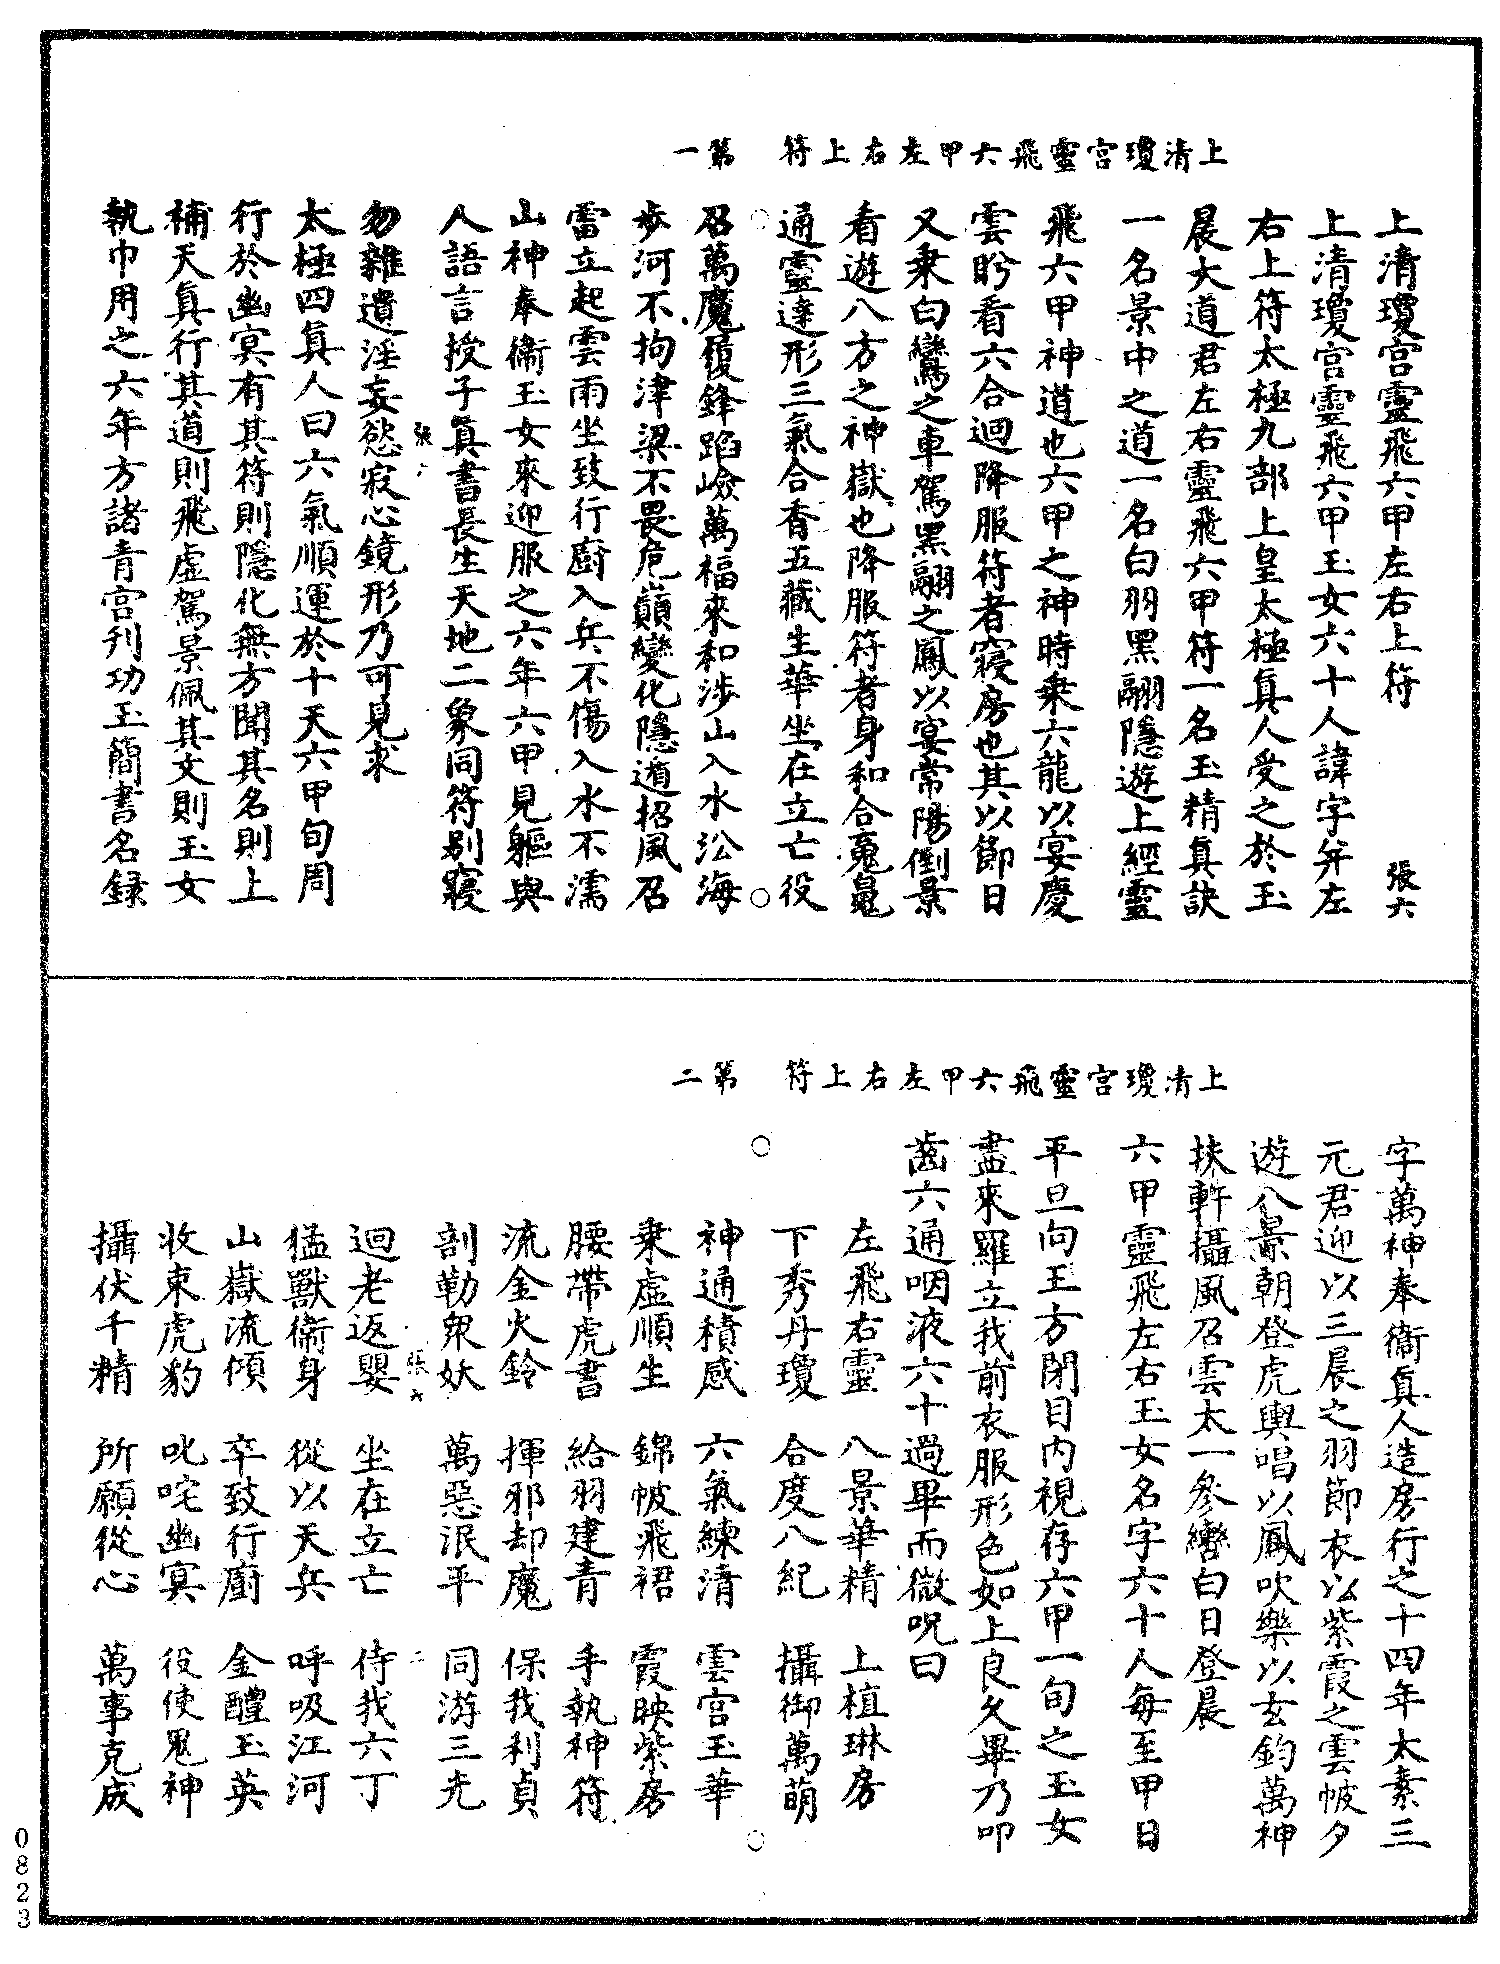 上清瓊宮靈飛六甲左右上符　第一
上清瓊宮靈飛六甲左右上符　張六
上清瓊宮靈飛六甲玉女六十人諱字并左
右上符太極九部上皇太極真人受之於玉
晨大道君左右靈飛六甲符一名玉精真訣
一名景中之道一名白羽黑翮隱遊上經靈
飛六甲神道也六甲之神時乘六龍以宴慶
雲眄看六合迴降服符者寢房也其以節日
又乘白鸞之車駕黑翮之鳳以宴常陽倒景
看遊八方之神嶽也降服符者身和合魂魄
通靈達形三氣合香五藏生華坐在立亡役
召萬魔履鋒蹈嶮萬福來和涉山入水泓海
步河不拘津梁不畏危巔變化隱遁招風召
雷立起雲雨坐致行廚入兵不傷入水不濡
山神奉衛玉女來迎服之六年六甲見軀與
人語言授子真書長生天地二象同符別寢
張六
勿雜遺淫妄慾寂心鏡形乃可見求
太極四真人曰六氣順運於十天六甲旬周
行於幽冥有其符則隱化無方聞其名則上
補天真行其道則飛虛駕景佩其文則玉女
執巾用之六年方諸青宮刋功玉簡書名錄
上清瓊宮靈飛六甲左右上符　第二
字萬神奉衛真人造房行之十四年太素三
元君迎以三晨之羽節衣以紫霞之雲帔夕
遊八景朝登虎輿唱以鳳吹樂以玄鈞萬神
扶軿攝風召雲太一參轡白日登晨
六甲靈飛左右玉女名字六十人每至甲日
平旦向王方閉目內視存六甲一旬之玉女
盡來羅立我前衣服形色如上良久畢乃叩
齒六通咽液六十過畢而微呪曰
左飛右靈　八景華精　上植琳房
下秀丹瓊　合度八紀　攝御萬萌
神通積感　六氣練清　雲宮玉華
乘虛順生　錦帔飛裙　霞映紫房
腰帶虎書　給羽建青　手執神符
流金火鈴　揮邪却魔　保我利貞
剖勒眾妖　萬惡泯平　同游三光
張六　二
迴老返嬰　坐在立亡　侍我六丁
猛獸衛身　從以天兵　呼吸江河
山嶽流傾　卒致行廚　金醴玉英
收束虎豹　叱咤幽冥　役使鬼神
攝伏千精　所願從心　萬事克成
0823